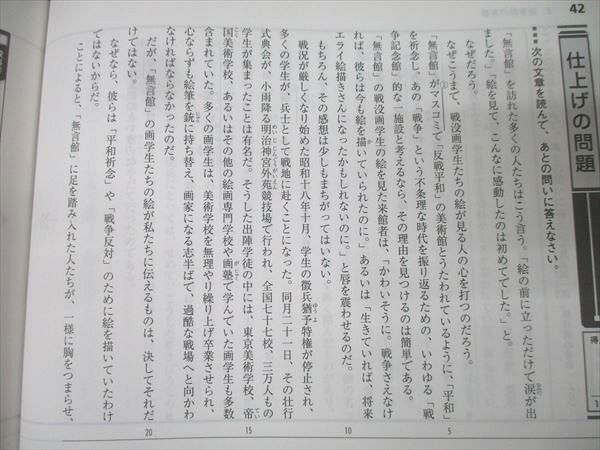 42
仕上げの問題
得
1
次の文章を読んで、あとの問いに答えなさい。
「無言館」を訪れた多くの人たちはこう言う。「絵の前に立っただけで涙が出
ました。」「絵を見て、こんなに感動したのは初めてでした。」と。
なぜだろう。
なぜこうまで、戦没画学生たちの絵が見る人の心を打つのだろう。
「無言館」がマスコミで「反戦平和」の美術館とうたわれているように、「平和」
を祈念し、あの「戦争」という不条理な時代を振り返るための、いわゆる「戦
争記念館」的な一施設と考えるなら、その理由を見つけるのは簡単である。
「無言館」の戦没画学生の絵を見た来館者は、「かわいそうに。戦争さえなけ
れば、彼らは今も絵を描いていられたのに。」あるいは「生きていれば、将来
エライ絵描きさんになったかもしれないのに。」と唇を震わせるのだ。
もちろん、その感想は少しもまちがってはいない。
戦況が厳しくなり始めた昭和十八年十月、学生の徴兵猶予特権が停止され、
多くの学生が、兵士として戦地に赴くことになった。同月二十一日、その壮行
式典会が、小雨降る明治神宮外苑競技場で行われ、全国七十七校、三万人もの
学生が集まったことは有名だ。そうした出陣学徒の中には、東京美術学校、帝
国美術学校、あるいはその他の絵画専門学校や画塾で学んでいた画学生も多数
含まれていた。多くの画学生は、美術学校を無理やり繰り上げ卒業させられ、
心ならずも絵筆を銃に持ち替え、画家になる志半ばで、過酷な戦場へと向かわ
なければならなかったのだ。
だが、「無言館」の画学生たちの絵が私たちに伝えるものは、決してそれだ
けではない。
なぜなら、彼らは「平和祈念」や「戦争反対」のために絵を描いていたわけ
ではないからだ。
ことによると、「無言館」に足を踏み入れた人たちが、一様に胸をつまらせ、
5
10
15
20